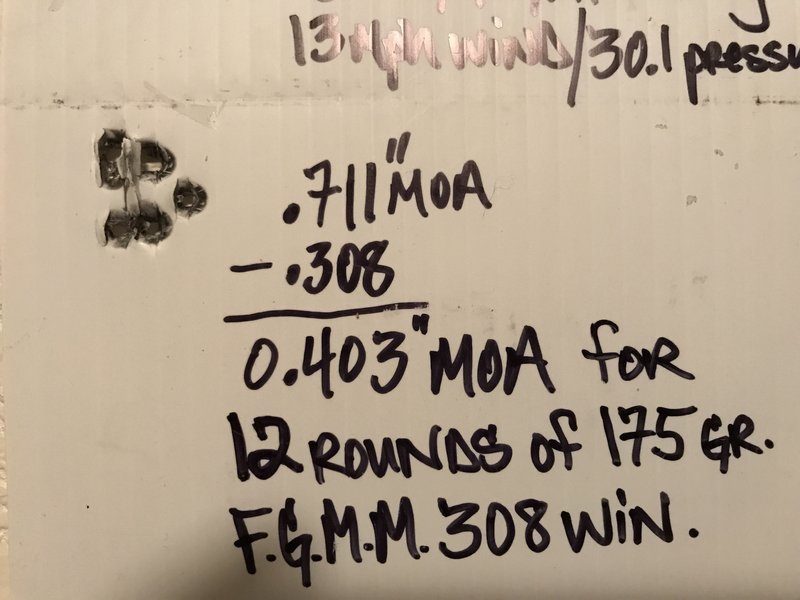 13 mph wiND/30.1 pressu
.711" MOA
- .308
0.403" MOA foR
12 ROUNDS of 175 GR.
F.G.M.M. 308 WiN.